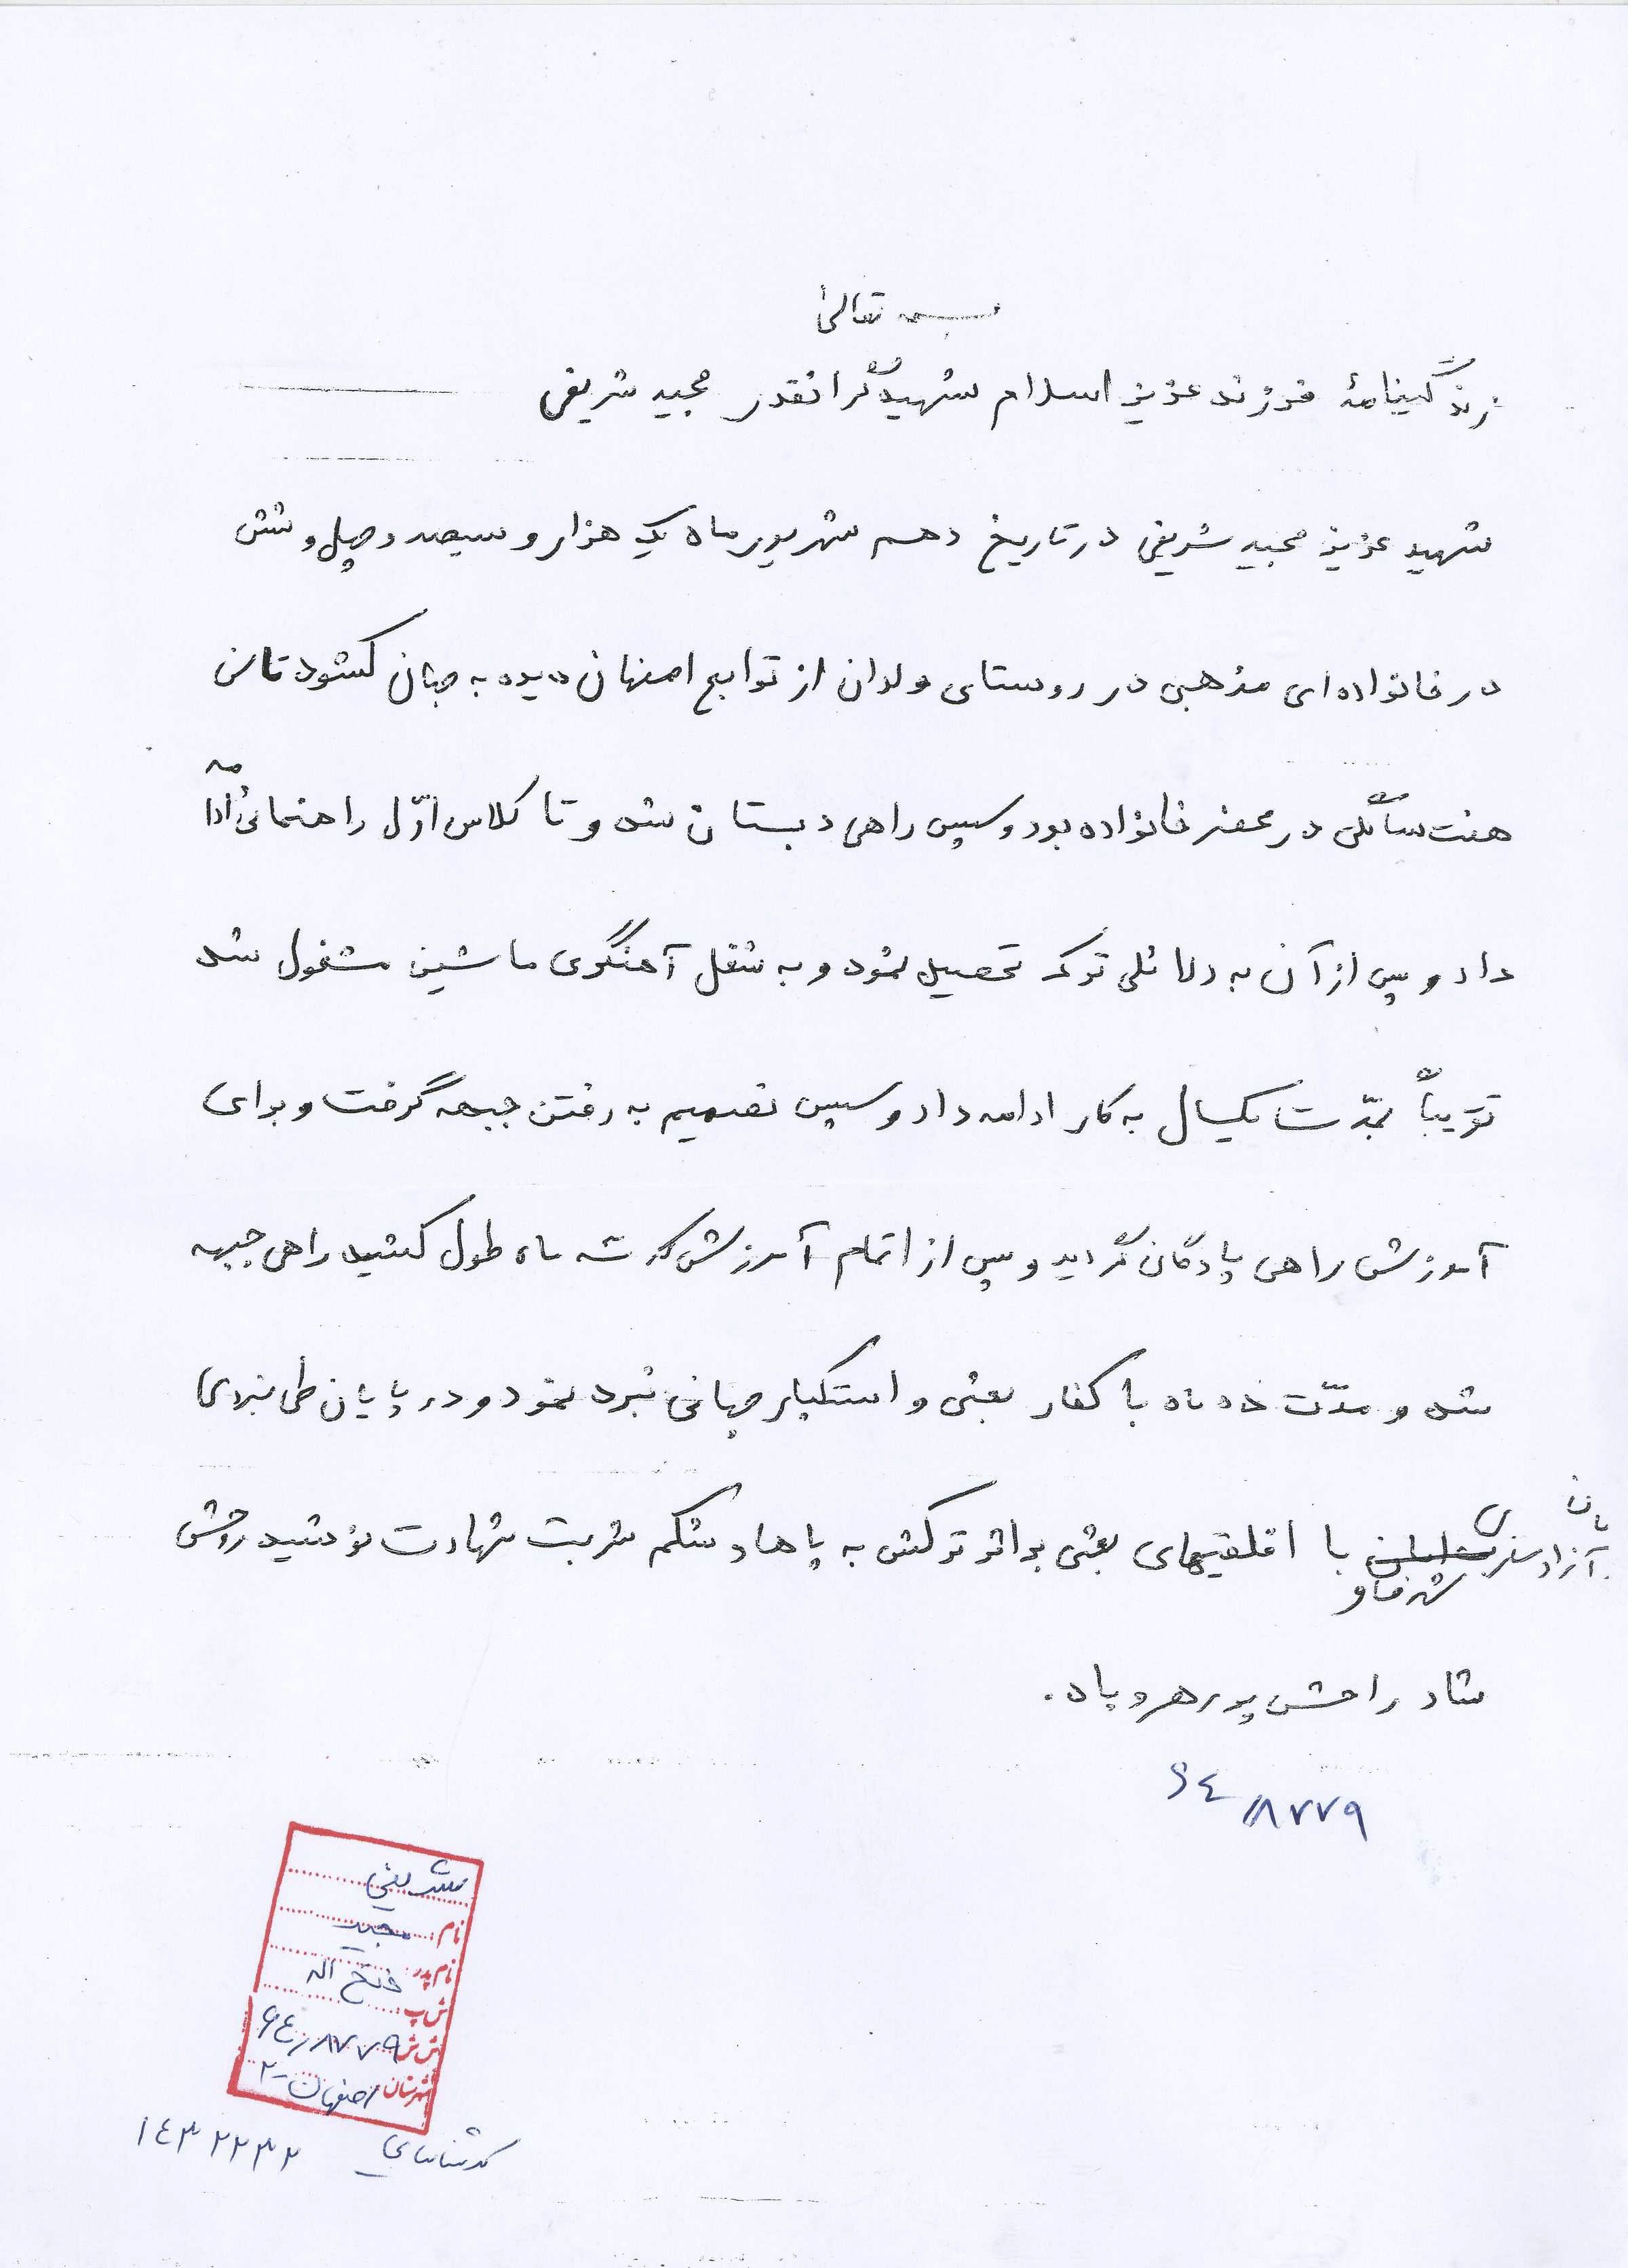 بسمه تعالی
زندگینامهٔ فرزند عزیز اسلام شهید گرانقدر مجید شریفی
شهید عزیز مجید شریفی در تاریخ دهم شهریور ماه یک هزار و سیصد و چهل و شش
در خانواده ای مذهبی در روستای ولدان از توابع اصفهان دیده به جهان گشود تا سن
هفت سالگی در محضر خانواده بود و سپس راهی دبستان شد و تا کلاس اوّل راهنمائی ادامه
داد و پس از آن به دلائلی ترک تحصیل نمود و به شغل آهنگری ماشین مشغول شد
تقریباً بمدّت یکسال به کار ادامه داد و سپس تصمیم به رفتن جبهه گرفت و برای
آموزش راهی پادگان گردید و پس از اتمام آموزش که سه ماه طول کشید راهی جبهه
شد و مدّت ده ماه با کفار بعثی و استکبار جهانی نبرد نمود و در پایان طی نبردی
آزاد سازی شهر فاو با اقلقیهای بعثی براثر ترکش به پاها و شکم شربت شهادت نوشید روحش
شاد راهش پر رهرو باد.
۶٤/۸۷۷۹
شریفی
نام: مجید
نام پدر: فتح اله
ش پ:
ش ش ۶٤/۸۷۷۹
شهرستان اصفهان - ۲
کد شناسایی ۱٤۳۲۲۳۲